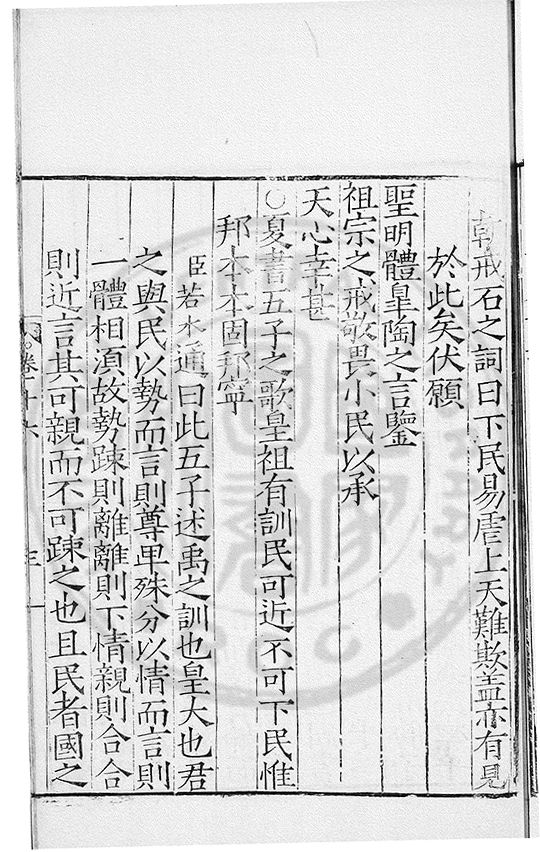 乾戒石之詞曰下民易虐上天難欺盖亦有見
於此矣伏願
聖明體皐陶之言鑒
祖宗之戒敬畏小民以承
天心幸甚
○夏書五子之歌皇祖有訓民可近不可下民惟
邦本本固邦寧
臣若水通曰此五子述禹之訓也皇大也君
之與民以勢而言則尊卑殊分以情而言則
一體相湏故勢踈則離離則下情親則合合
則近言其可親而不可踈之也且民者國之